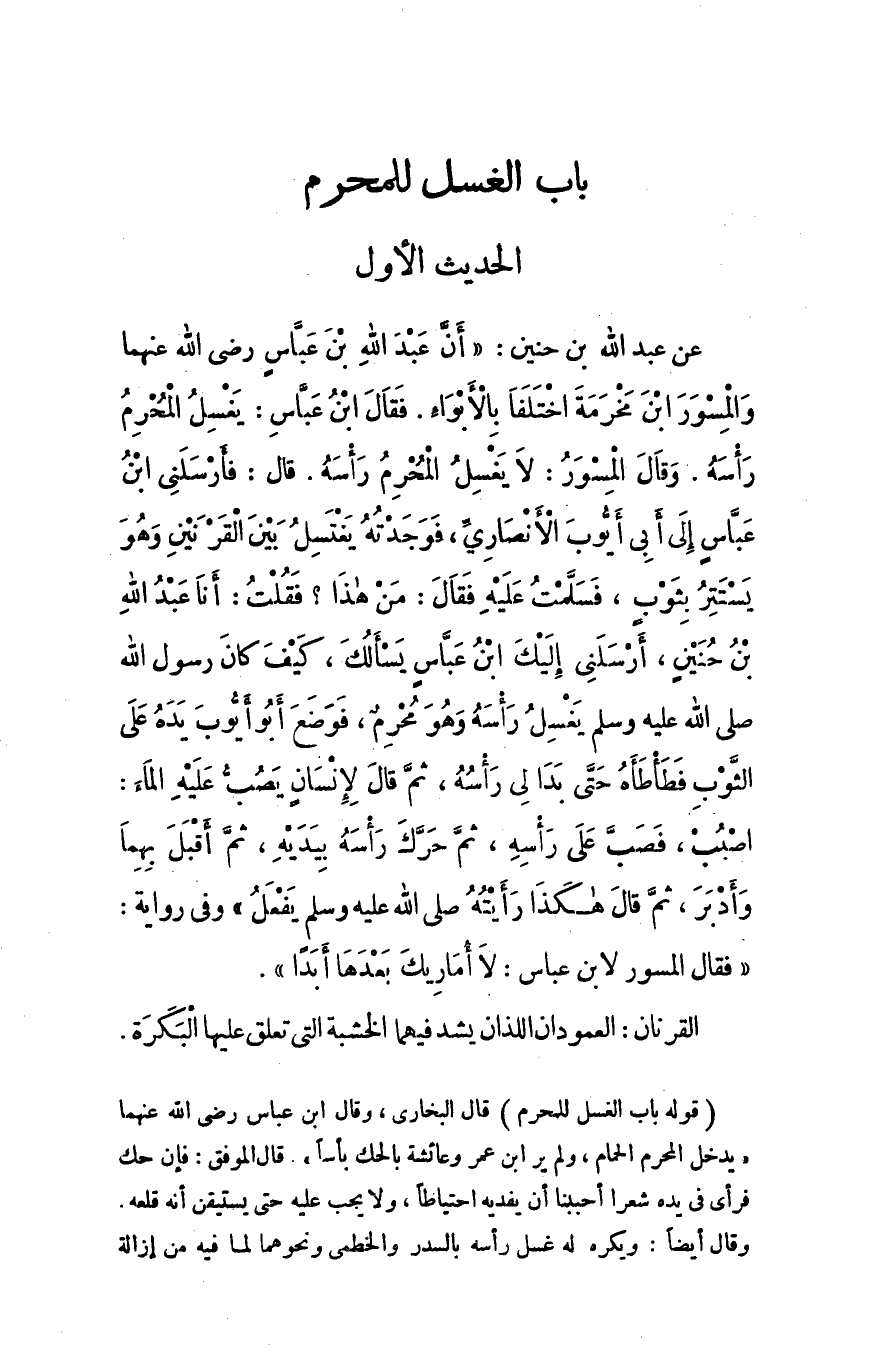 باب الغسل للمحرم
الحديث الأول
عن عبد الله بن حنين : « أَنَّ عَبْدَ اللهِ بْنَ عَبَّاسٍ رضى الله عنهما
وَالْمِسْوَرَ ابْنَ مَخْرَمَةَ اخْتَلَفَا بِالْأَبْوَاءِ . فَقَالَ ابْنُ عَبَّاسٍ : يَغْسِلُ الْمُحْرِمُ
رَأْسَهُ . وَقَالَ الْمِسْوَرُ : لَا يَغْسِلُ الْمُحْرِمُ رَأْسَهُ . قال : فَأَرْسَلَنِى ابْنُ
عَبَّاسٍ إِلَى أَبِى أَيُّوبَ الْأَنْصَارِىِّ ، فَوَجَدْتُهُ يَغْتَسِلُ بَيْنَ الْقَرْنَيْنِ وَهُوَ
يَسْتَتِرُ بِثَوْبٍ ، فَسَلَّمْتُ عَلَيْهِ فَقَالَ : مَنْ هٰذَا ؟ فَقُلْتُ : أَنَا عَبْدُ اللهِ
بْنُ حُنَيْنٍ ، أَرْسَلَنِى إِلَيْكَ ابْنُ عَبَّاسٍ يَسْأَلُكَ ، كَيْفَ كَانَ رسول الله
صلى الله عليه وسلم يَغْسِلُ رَأْسَهُ وَهُوَ مُحْرِمٌ ، فَوَضَعَ أَبُو أَيُّوبَ يَدَهُ عَلَى
الثَّوْبِ فَطَأْطَأَهُ حَتَّى بَدَا لِى رَأْسُهُ ، ثُمَّ قَالَ لِإِنْسَانٍ يَصُبُّ عَلَيْهِ الْمَاءَ :
اصْبُبْ ، فَصَبَّ عَلَى رَأْسِهِ ، ثُمَّ حَرَّكَ رَأْسَهُ بِيَدَيْهِ ، ثُمَّ أَقْبَلَ بِهِمَا
وَأَدْبَرَ ، ثُمَّ قَالَ هٰكَذَا رَأَيْتُهُ صلى الله عليه وسلم يَفْعَلُ » وفى رواية :
« فقال المسور لابن عباس : لَا أُمَارِيكَ بَعْدَهَا أَبَدًا » .
القرنان : العمودان اللذان يشد فيهما الخشبة التى تعلق عليها الْبَكَرَة .
( قوله باب الغسل للمحرم ) قال البخارى ، وقال ابن عباس رضى الله عنهما
« يدخل المحرم الحمام ، ولم ير ابن عمر وعائشة بالحك بأساً » . قال الموفق : فإن حك
فرأى فى يده شعرا أحببنا أن يفديه احتياطاً ، ولا يجب عليه حتى يستيقن أنه قلعه .
وقال أيضاً : ويكره له غسل رأسه بالسدر والخطمى ونحوهما لما فيه من إزالة